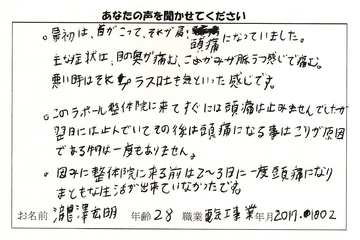 あなたの声を聞かせてください
。最初は、首がこって、それが肩、頭痛になっていました。
主な症状は、目の奥が痛む、こめかみが脈うつ感じで痛む。
悪い時はそれプラス吐き気といった感じです。
。このラポール整体院に来てすぐには頭痛は止みませんでしたが
翌日には止んでいてその後は頭痛になる事はこりが原因
である物は一度もありません。
。因みに整体院に来る前は2〜3日に一度頭痛になり
まともな生活が出来ていなかったです
お名前 瀧澤宏明 年齢 28 職業 電気工事業 年月 2017.